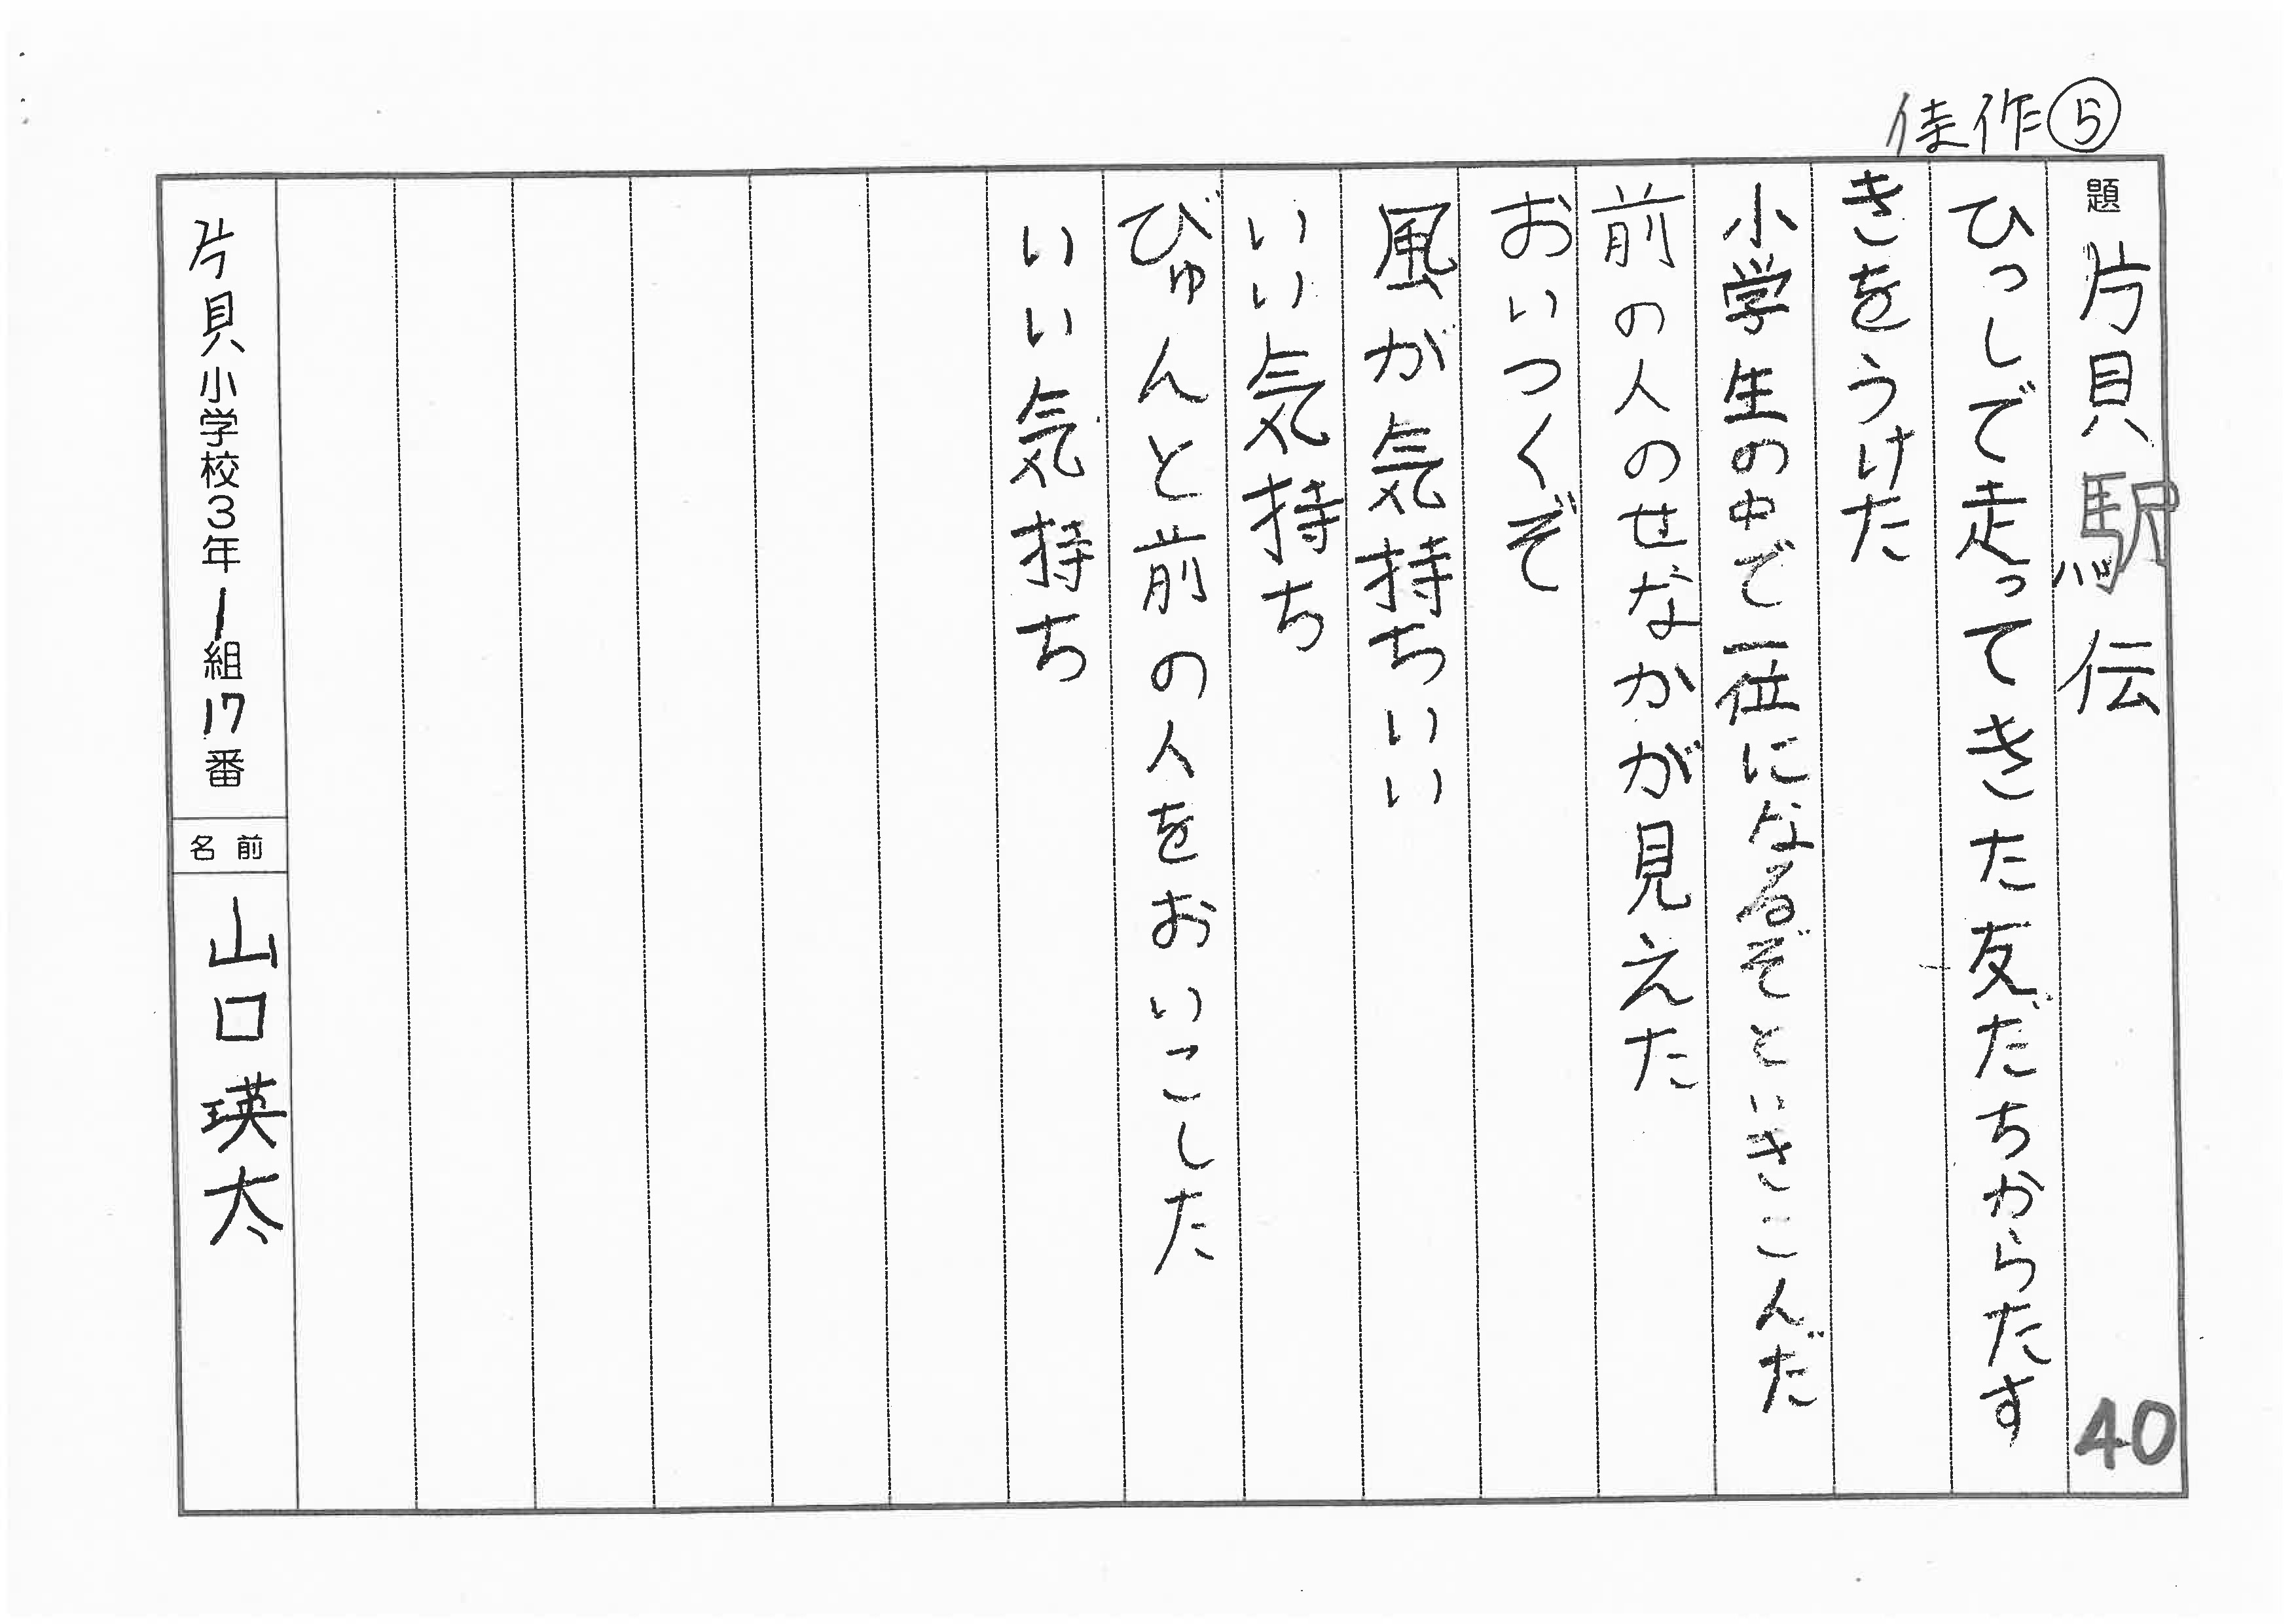 佳作⑤
題 片貝駅伝
40
ひっしで走ってきた友だちからたす
きをうけた
小学生の中で一位になるぞといきこんだ
前の人のせなかが見えた
おいつくぞ
風が気持ちいい
いい気持ち
びゅんと前の人をおいこした
いい気持ち
片貝小学校3年1組17番
名前 山口瑛太